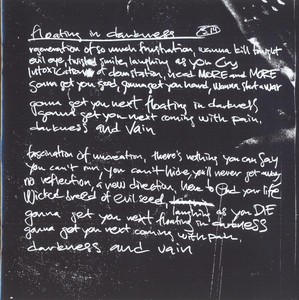 floating in darkness
regeneration of so much frustration, wanna kill tonight
evil eye, twisted smile, laughing as you Cry
intoxication of devastation, need MORE and MORE
gonna get you seed, gonna get you hand, wanna
gonna get you next floating in darkness
gonna get you next coming with pain,
darkness and Vain
fascination of, there's nothing you can say
you can't run, you can't hide, you'll never get away
no reflection, a new direction, to end you life
Wicked breed of evil seed, laughing as you DIE
gonna get you next floating in darkness
gonna get you next coming with pain,
darkness and vain